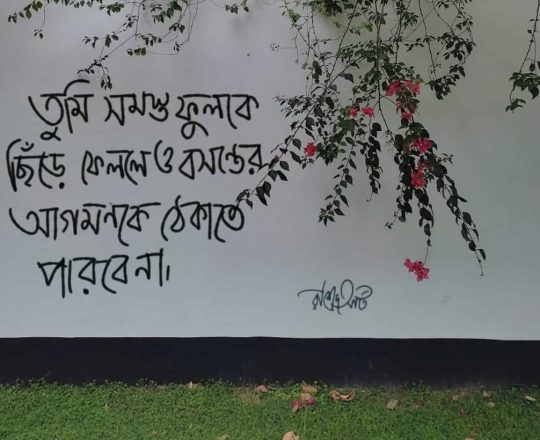 তুমি সমস্ত ফুলকে
ছিঁড়ে ফেললেও বসন্তের
আগমনকে ঠেকাতে
পারবেনা।